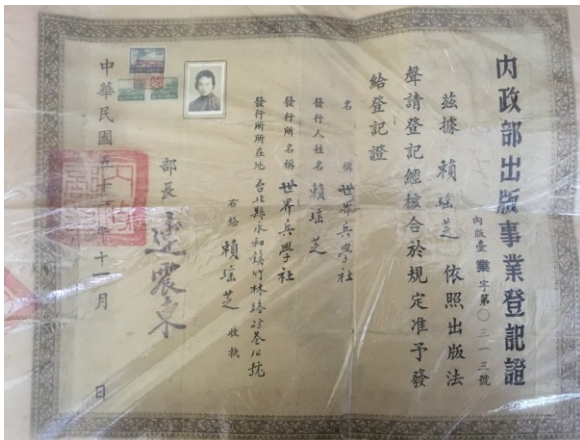 內政部出版事業登記證
內版臺業字第〇三一三號
茲據 賴瑤芝 依照出版法
聲請登記經核合於規定准予發
給登記證
名 稱 世界兵學社
發行人姓名 賴瑤芝
發行所名稱 世界兵學社
發行所所在地 台北縣永和鎮竹林路25巷12號
右給 賴瑤芝 收執
部長 連震東
中華民國五十 年十一月 日